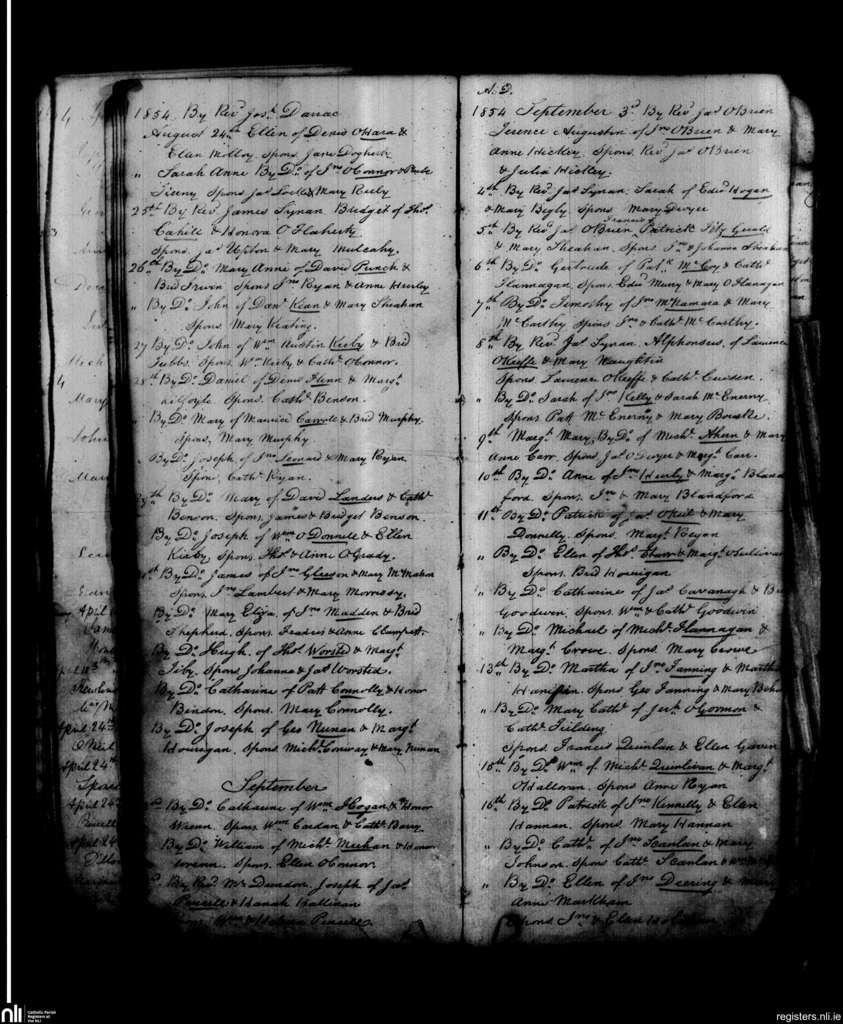 1854. By Revd Jos. Darrac
August 24th Ellen of Denis OHara &
Ellen Molloy. Spons Jane Dogherty
" Sarah Anne By Do. of Jno OConnor &
Tierny Spons Jas Locke & Mary Kerby
25th By Revd James Synan Bridget of Thos.
Cahill & Honora O Flaherty
Spons. Jas Upton & Mary Mulcahy.
26th By Do. Mary Anne of David Punch &
Brid Irwin Spons Jno Ryan & Anne Hurly
" By Do. John of Danl Kean & Mary Sheahan
Spons Mary Keating.
27 By Do. John of Wm Austin Kerby & Brid
Tubbs. Spons. Wm Kerby & Cathe. OConnor.
28th By Do. Daniel of Denis Flinn & Margt.
Spons. Cathe Benson.
By Do. Mary of Maurice Carrole & Brid Murphy.
Spons, Mary Murphy
By Do. Joseph of Jno Leonard & Mary Ryan
Spons. Cathe. Ryan.
29th By Do. Mary of David Landers & Cathe
Benson. Spons. James & Bridget Benson.
By Do. Joseph of Wm O Donnell & Ellen
Kirby Spons. Thos & Anne O Grady.
By Do. James of Jno Gleeson & Mary McMahon
Spons. Jno Lambert & Mary Morrissy.
By Do. Mary Eliza. of Jno Madden & Brid
Shepherd. Spons. Francis & Anne
By Do. Hugh. of Thos Worsted & Margt.
Spons Johanna & Jas Worsted.
By Do. Catharine of Patt Connolly & Honor
Bindon. Spons. Mary Connolly.
By Do. Joseph of Geo Nunan & Margt.
Hourigan. Spons Michl. Conway & Mary Nunan
September
By Do. Catharine of Wm Hogan & Honor
Wrenn. Spons. Wm Cardan & Cathe Barry
By Do. William of Michl. Meehan & Honor
Wrenn. Spons. Ellen OConnor.
By Revd Mr Dundon. Joseph of Jas
Purcell & Hanah Hallinan
Wm & Purcell.
A.D.
1854 September 3rd By Revd Jas OBrien
Terence Augustin of Jno OBrien & Mary
Anne Hickey. Spons. Revd Jas OBrien
& Julia Hickey.
4th By Revd Jas Synan. Sarah of Edwd Hogan
& Mary Begly Spons Mary Dwyer
Francis
5th By Revd Jas OBrien Patrick Fitz Gerald
& Mary Sheahan. Spons Jno & Johanna Sheahan
6th By Do. Gertrude of Patk. McCoy & Cathe
Flannagan. Spons. Edwd Murry & Mary O Flanagan
7th By Do. Timothy of Jno McNamara & Mary
McCarthy Spons Jno & Cathe McCarthy.
8th By Revd. Jas Synan. Alphonsus. of Laurence
OKeeffe & Mary Naughtin
Spons Laurence OKeeffe & Cathe.
" By Do. Sarah of Jno Kelly & Sarah McEnerny
Spons Patt McEnerny & Mary Bourke.
9th Margt Mary, By Do. of Michl. Ahern & Mary
Anne Carr. Spons. Jas ODwyer & Margt. Carr.
10th By Do. Anne of Jno Hurly & Margt. Bland
ford. Spons. Jno & Mary Blandford
11th By Do. Patrick of Jas ONeil & Mary
Donnelly. Spons. Margt Ryan
" By Do. Ellen of Thos Ahern & Margt OSullivan
Spons. Brid Hourigan
" By Do. Catharine of Jas Cavanagh &
Goodwin. Spons. Wm & Cathe Goodwin
" By Do. Michael of Michl. Flannagan &
Margt. Crowe. Spons. Mary Crowe
13th By Do. Martha of Jno Fanning & Martha
Hanifin. Spons Geo Fanning & Mary
" By Do. Mary Cathe. of Jerh. OGorman &
Cathe. Fielding
Spons Francis Quinlan & Ellen
15th By Do. Wm of Michl. Quinlivan & Margt.
OHalloran. Spons Anne Ryan
16th By Do Patrick of Jno Kennelly & Ellen
Hannan. Spons. Mary Hannan
" By Do. Cathe. of Jno Scanlan & Mary
Johnson. Spons Cathe. Scanlan &
" By Do. Ellen of Jno Deering & Mary
Anne Markham
Spons Jno & Ellen
April
April 24th
April 24th
April 24
nli
Catholic Parish
Registers at
the NLI
registers.nli.ie